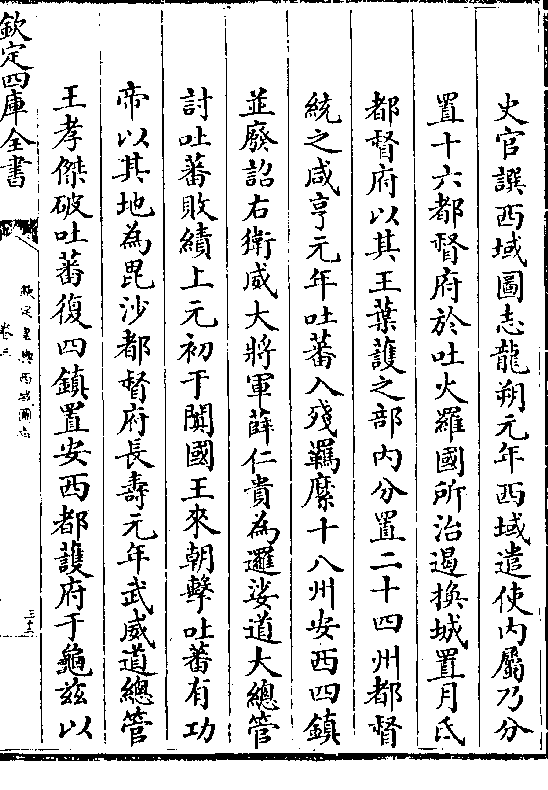 史官譔西域圖志龍朔元年西域遣使内屬乃分
置十六都督府於吐火羅國所治遏換城置月氏
都督府以其王葉䕶之部内分置二十四州都督
統之咸亨元年吐蕃入殘羈縻十八州安西四鎮
並廢詔右衛威大將軍薛仁貴為邏娑道大總管
討吐蕃敗績上元初于闐國王來朝擊吐蕃有功
帝以其地為毘沙都督府長壽元年武威道總管
王孝傑破吐蕃復四鎮置安西都䕶府于龜兹以
欽定四庫全書
欽定皇輿西域圖志
卷三